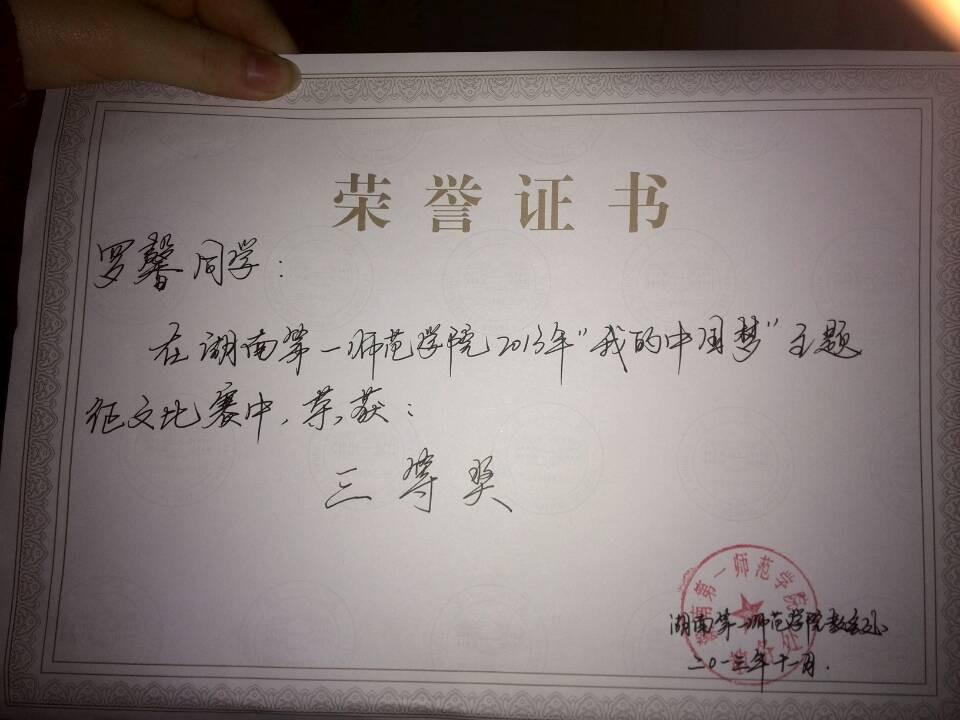 荣誉证书
罗馨同学：
在湖南第一师范学院2013年“我的中国梦”主题
征文比赛中，荣获：
三等奖
湖南第一师范学院
湖南第一师范学院教务处
二〇一三年十一月.